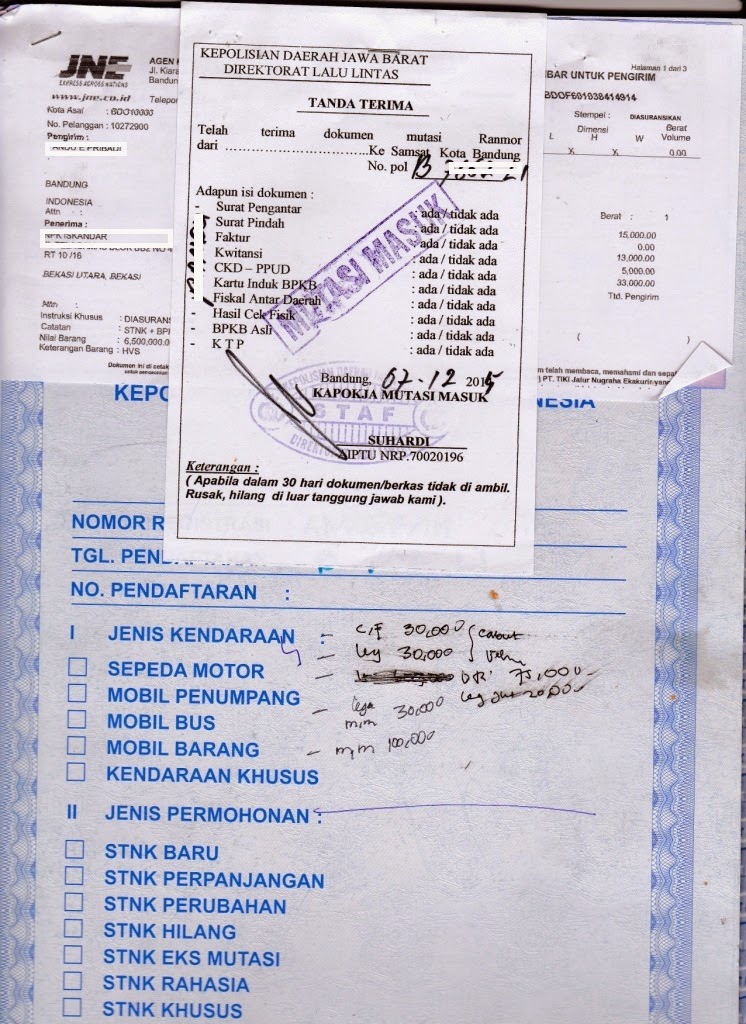 JNE
EXPRESS ACROSS NATIONS
www.jne.co.id
AGEN
Jl. Kiara
Bandun
Telepon
Kota Asal : BDO10000
No. Pelanggan : 10272900
Pengirim :
BANDUNG
INDONESIA
Attn :
Penerima :
NPK ISKANDAR
RT 10 /16
BEKASI UTARA, BEKASI
Attn :
Instruksi Khusus : DIASURANS
Catatan : STNK + BPI
Nilai Barang : 6,500,000.0
Keterangan Barang : HVS
Dokumen ini di cetak
KEPOLISIAN DAERAH JAWA BARAT
DIREKTORAT LALU LINTAS
TANDA TERIMA
Telah terima dokumen mutasi Ranmor
dari ................................Ke Samsat Kota Bandung
No. pol B
Adapun isi dokumen :
- Surat Pengantar : ada / tidak ada
Surat Pindah : ada / tidak ada
Faktur : ada / tidak ada
Kwitansi : ada / tidak ada
CKD – PPUD : ada / tidak ada
Kartu Induk BPKB : ada / tidak ada
Fiskal Antar Daerah : ada / tidak ada
- Hasil Cek Fisik : ada / tidak ada
- BPKB Asli : ada / tidak ada
- K T P : ada / tidak ada
MUTASI MASUK
Bandung, 07-12 2015
KAPOKJA MUTASI MASUK
STAF
SUHARDI
AIPTU NRP.70020196
Keterangan :
( Apabila dalam 30 hari dokumen/berkas tidak di ambil.
Rusak, hilang di luar tanggung jawab kami ).
Halaman 1 dari 3
BAR UNTUK PENGIRIM
BDOF601038414914
Stempel : DIASURANSIKAN
L Dimensi H W Berat Volume
X X 0.00
Berat : 1
15,000.00
0.00
13,000.00
5,000.00
33,000.00
Ttd. Pengirim
( )
m telah membaca, memahami dan sepa
) PT. TIKI Jalur Nugraha Ekakurir yang
KEPO
NESIA
NOMOR R
TGL. PEND
NO. PENDAFTARAN :
I JENIS KENDARAAN
SEPEDA MOTOR
MOBIL PENUMPANG
MOBIL BUS
MOBIL BARANG
KENDARAAN KHUSUS
- C/F 30,000 cabut
- leg 30,000
75,000
- lega 30,000
m,m
- m,m 100,000
II JENIS PERMOHONAN :
STNK BARU
STNK PERPANJANGAN
STNK PERUBAHAN
STNK HILANG
STNK EKS MUTASI
STNK RAHASIA
STNK KHUSUS